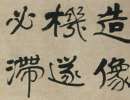 造像
機遂
必滯